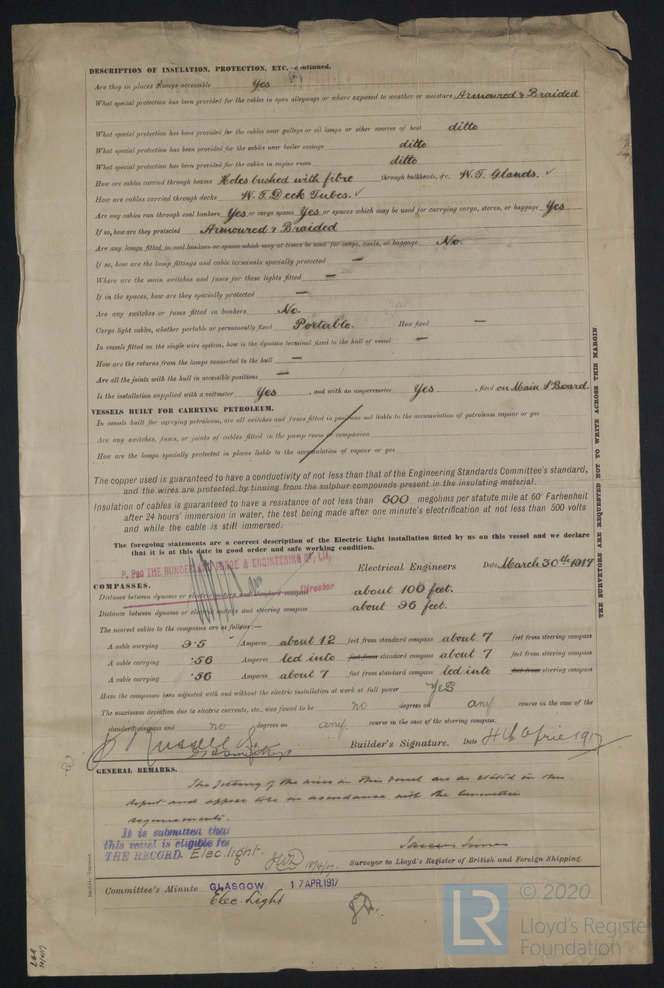 DESCRIPTION OF INSULATION, PROTECTION, ETC.—continued.
Are they in places always accessible Yes
What special protection has been provided for the cables in open alleyways or where exposed to weather or moisture Armoured & Braided
What special protection has been provided for the cables near galleys or oil lamps or other sources of heat ditto
What special protection has been provided for the cables near boiler casings ditto
What special protection has been provided for the cables in engine room ditto
How are cables carried through beams Holes bushed with fibre through bulkheads, &c. W.T. Glands. ✓
How are cables carried through decks W.T. Deck Tubes. ✓
Are any cables run through coal bunkers Yes or cargo spaces Yes or spaces which may be used for carrying cargo, stores, or baggage Yes
If so, how are they protected Armoured & Braided
Are any lamps fitted in coal bunkers or spaces which may at times be used for cargo, coals, or baggage No.
If so, how are the lamp fittings and cable terminals specially protected —
Where are the main switches and fuses for these lights fitted —
If in the spaces, how are they specially protected —
Are any switches or fuses fitted in bunkers No.
Cargo light cables, whether portable or permanently fixed Portable. How fixed —
In vessels fitted on the single wire system, how is the dynamo terminal fixed to the hull of vessel —
How are the returns from the lamps connected to the hull —
Are all the joints with the hull in accessible positions —
Is the installation supplied with a voltmeter Yes, and with an amperemeter Yes, fixed on Main S'Board.
VESSELS BUILT FOR CARRYING PETROLEUM.
In vessels built for carrying petroleum, are all switches and fuses fitted in positions not liable to the accumulation of petroleum vapour or gas
Are any switches, fuses, or joints of cables fitted in the pump room or companion
How are the lamps specially protected in places liable to the accumulation of vapour or gas
The copper used is guaranteed to have a conductivity of not less than that of the Engineering Standards Committee's standard,
and the wires are protected by tinning from the sulphur compounds present in the insulating material.
Insulation of cables is guaranteed to have a resistance of not less than 600 megohms per statute mile at 60° Farhenheit
after 24 hours' immersion in water, the test being made after one minute's electrification at not less than 500 volts
and while the cable is still immersed.
The foregoing statements are a correct description of the Electric Light installation fitted by us on this vessel and we declare
that it is at this date in good order and safe working condition.
P. Pro THE FORGE & ENGINEERING Co., Ld.,
Electrical Engineers Date March 30th 1917
Director
COMPASSES.
Distance between dynamo or electric motors and standard compass about 100 feet.
Distance between dynamo or electric motors and steering compass about 96 feet.
The nearest cables to the compasses are as follows:—
A cable carrying 3.5 Amperes about 12 feet from standard compass about 7 feet from steering compass
A cable carrying .56 Amperes led into feet from standard compass about 7 feet from steering compass
A cable carrying .56 Amperes about 7 feet from standard compass led into feet from steering compass
Have the compasses been adjusted with and without the electric installation at work at full power Yes
The maximum deviation due to electric currents, etc., was found to be no degrees on any course in the case of the
standard compass and no degrees on any course in the case of the steering compass.
Russell & Co
Builder's Signature. Date 4th April 1917
GENERAL REMARKS.
The fitting of the wires in this vessel are as stated in this
report and appear to be in accordance with the Committee's
requirements.
It is submitted that
this vessel is eligible for
THE RECORD. Elec. light.
James Innes
Surveyor to Lloyd's Register of British and Foreign Shipping.
Committee's Minute GLASGOW 17 APR. 1917
Elec. Light
THE SURVEYORS ARE REQUESTED NOT TO WRITE ACROSS THIS MARGIN
LR
© 2020
Lloyd's Register
Foundation